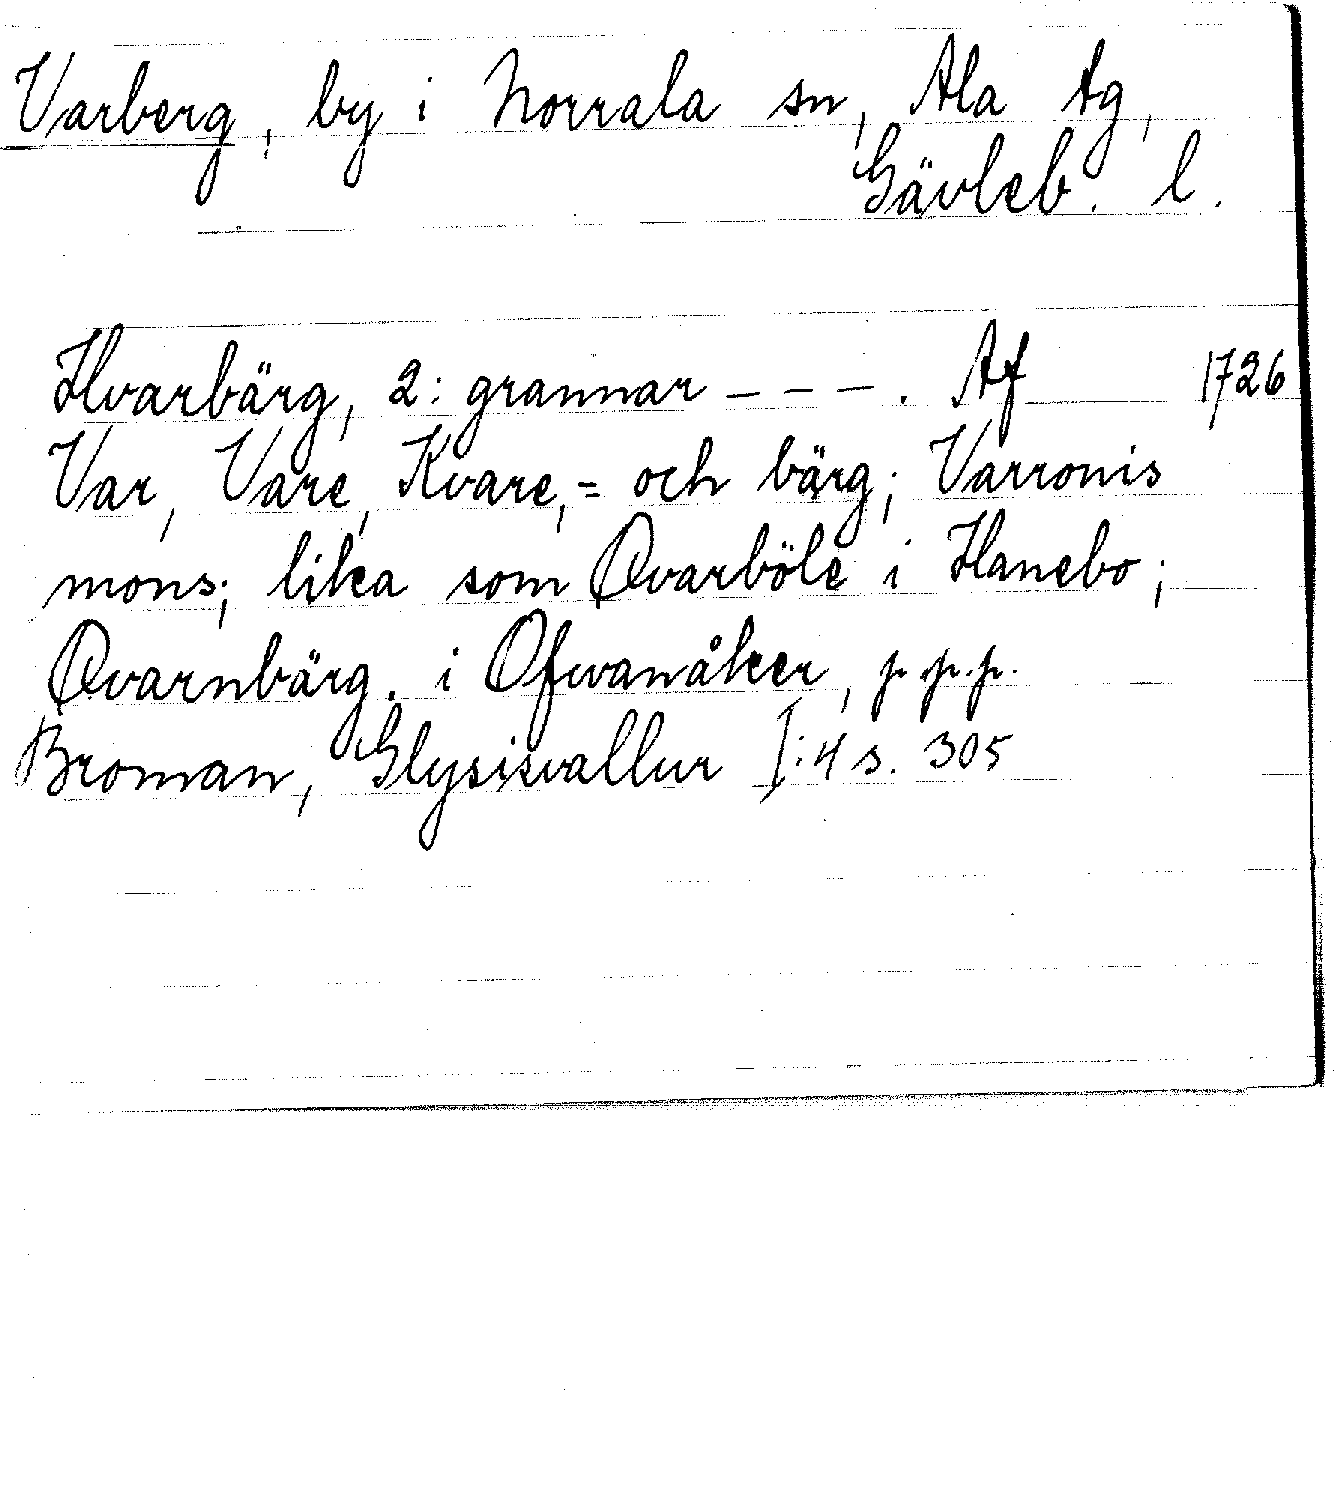 Varberg, by i Norrala sn, Ala tg,
Gävleb. l.
Hvarbärg, 2: grannar - - - . Af 1726
Var, Vare, Kvare,= och bärg; Varronis
mons; lika som Qvarböle i Hanebo;
Qvarnbärg. i Ofwanåker, p.p.p.
Broman, Glysisvallur I:4 s. 305